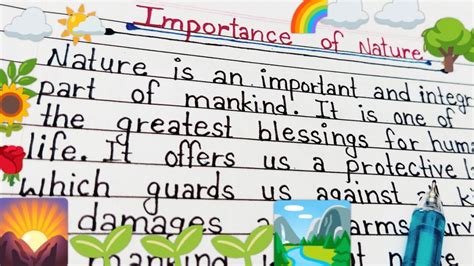 Importance of Nature
Nature is an important and integ
part of mankind. It is one of
the greatest blessings for hum
life. It offers us a protective
which guards us against
damages
mankind